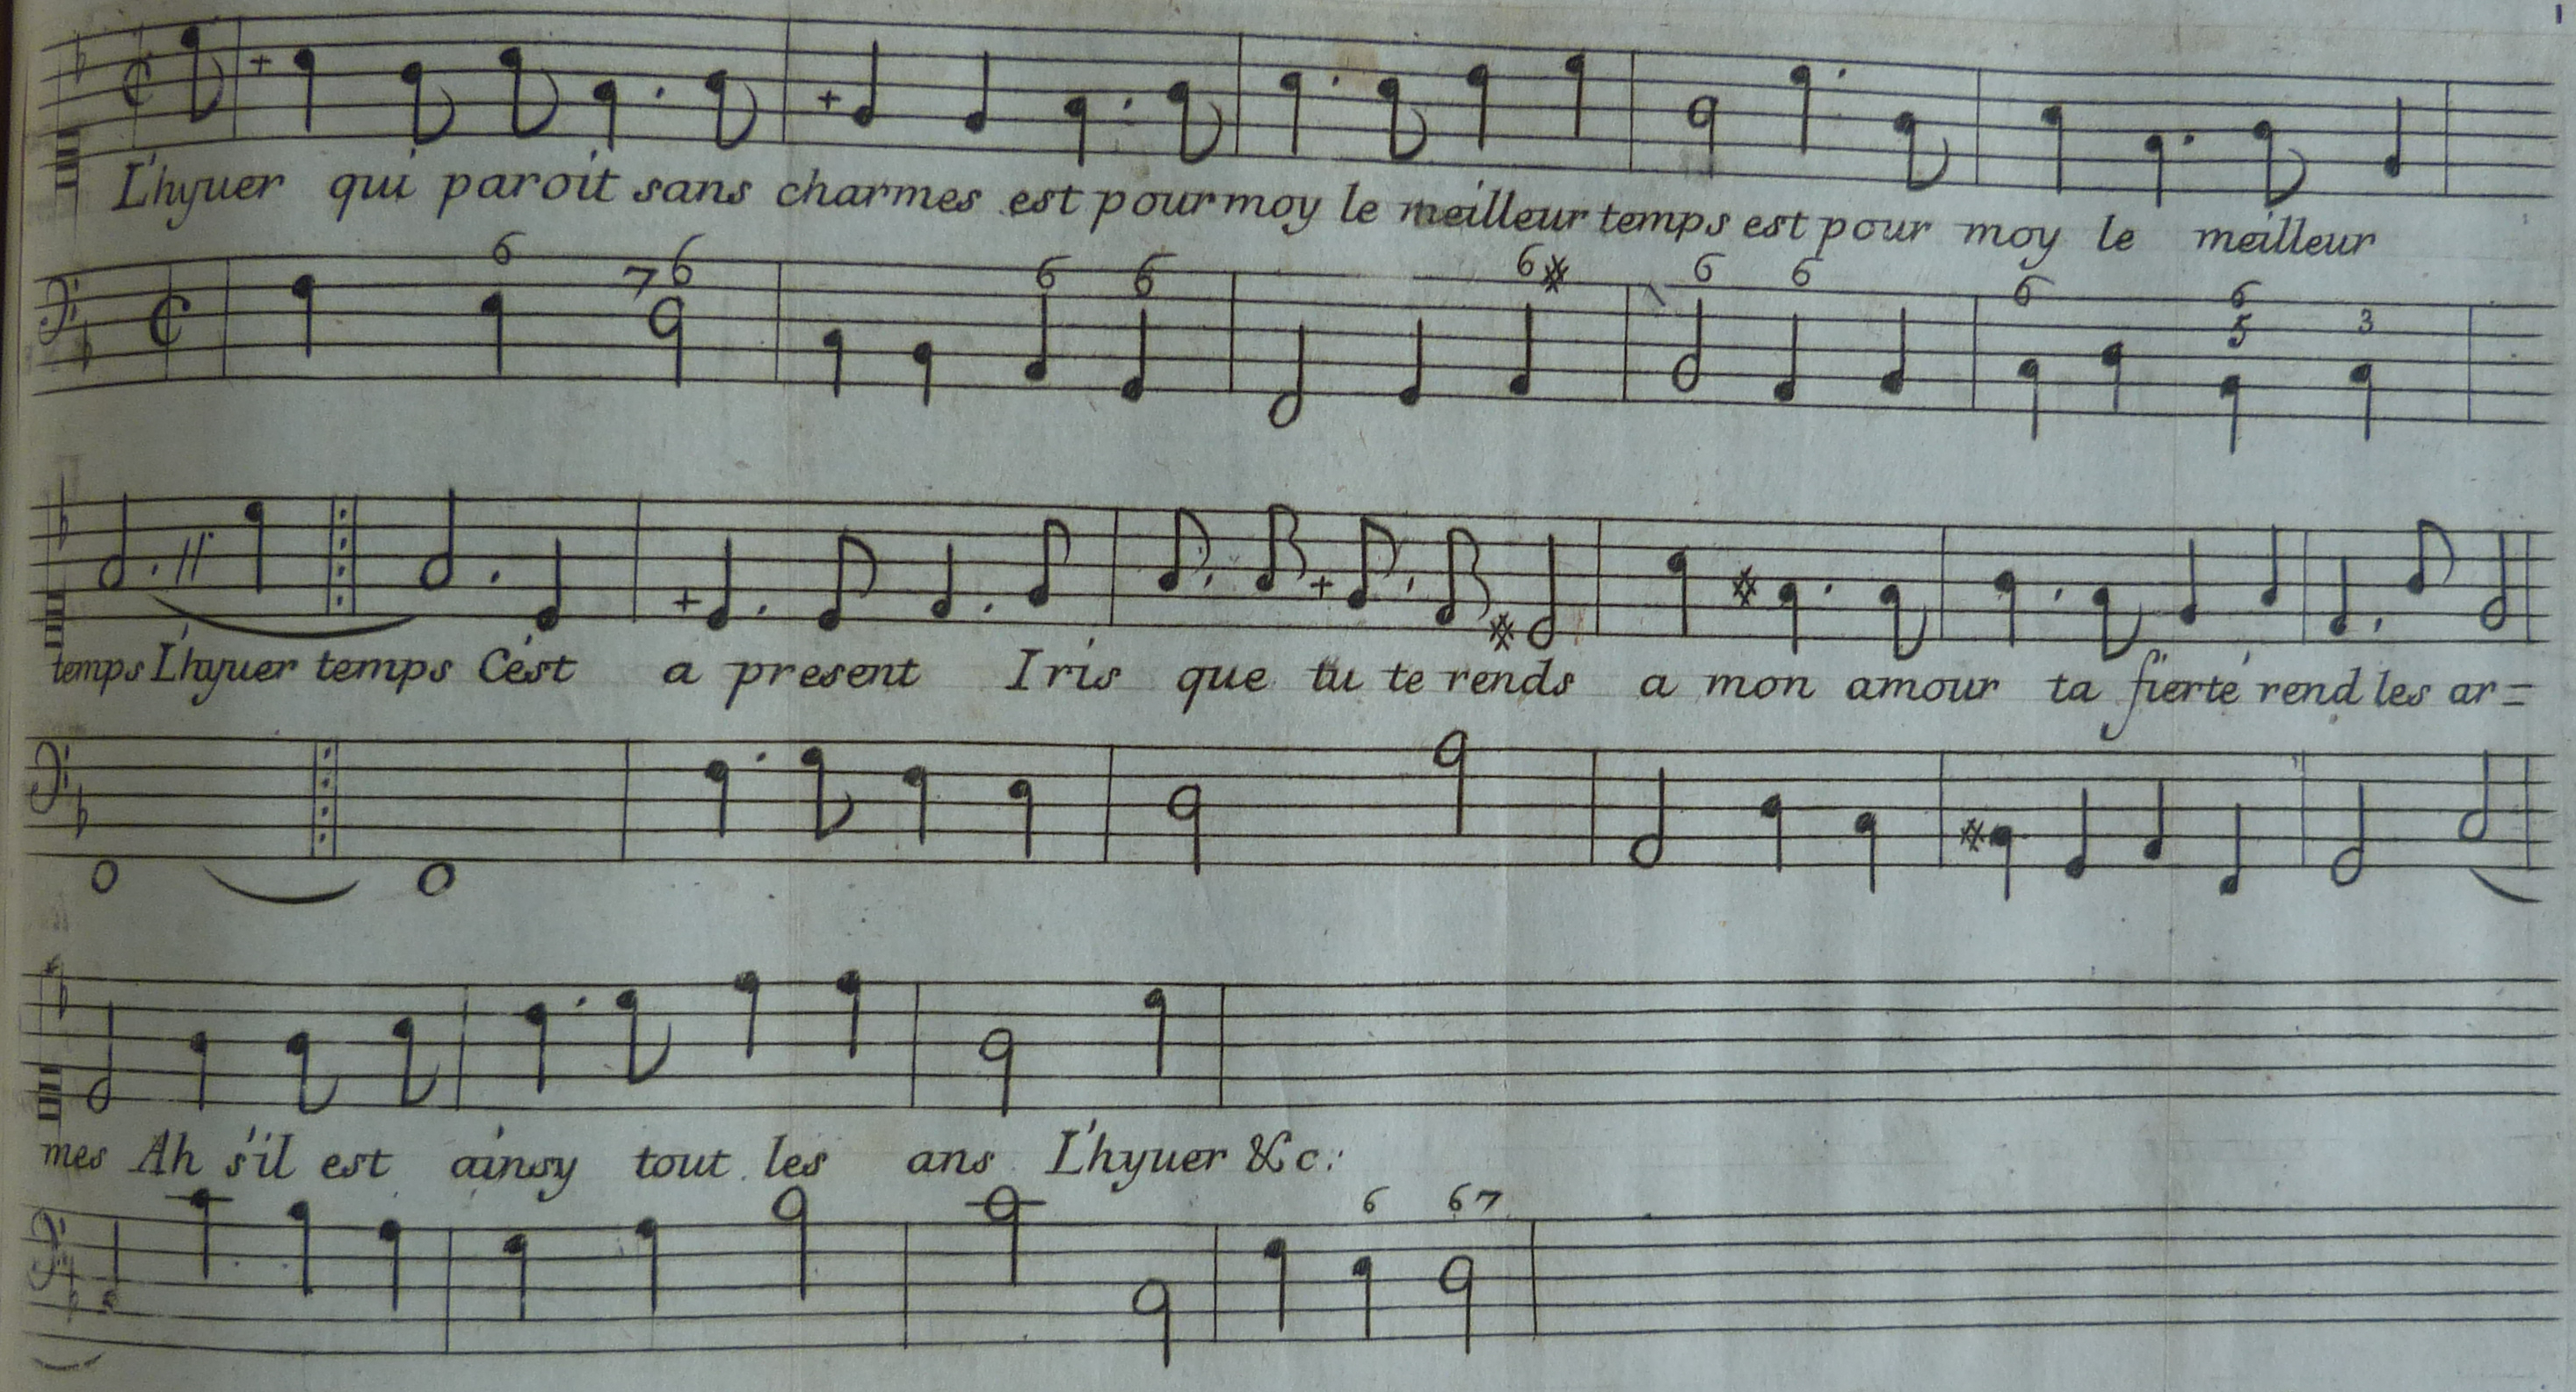 L'hyuer qui paroit sans charmes est pour moy le meilleur temps est pour moy le meilleur
6 7 6 6 6 6 6 6 6 6 5 3
temps L'hyuer temps C'est a present Iris que tu te rends a mon amour ta fierté rend les ar=
mes Ah s'il est ainsy tout les ans L'hyuer &c:
6 6 7